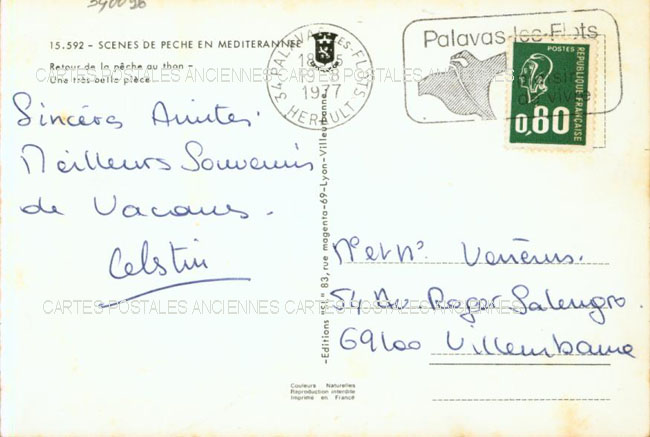 340026
15.592 – SCENES DE PECHE EN MEDITERANNEE
Retour de la pêche au thon –
Une très belle pièce
CARTES POSTALES ANCIENNES CARTES POSTALES ANCIENNES CARTES POSTALES ANCIENNES
Sincères Amitiés.
Meilleurs Souvenirs
de Vacances.
Celestin
34 PALAVAS-LES-FLOTS
1977
HERAULT
Palavas-les-Flots
POSTES
REPUBLIQUE FRANÇAISE
0,80
-Editions "SL" 83, rue magenta-69-Lyon-Villeurbanne
Mr et Me
51, Av. Roger Salengro.
69100 Villeurbanne
CARTES POSTALES ANCIENNES CARTES POSTALES ANCIENNES CARTES POSTALES ANCIENNES
Couleurs Naturelles
Reproduction interdite
Imprimé en France